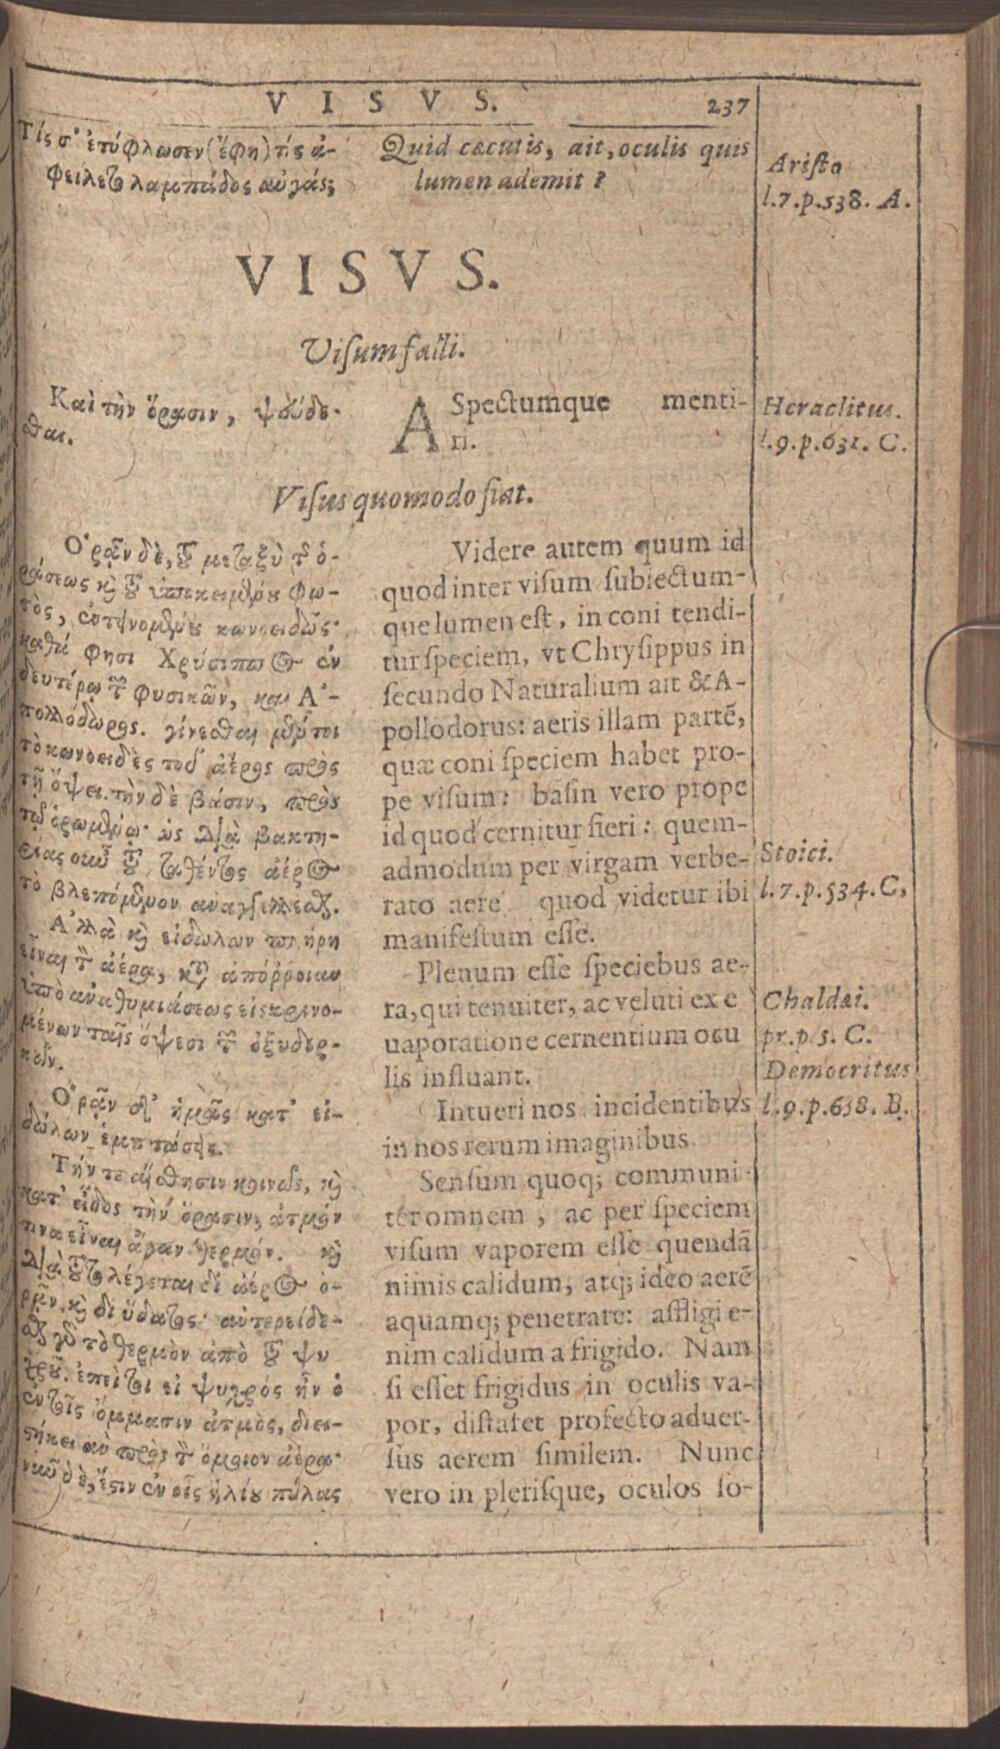 VISVS. 237
Τίς σ' ἐτύφλωσεν (ἔφη) τίς ἀ-
φείλετο λαμπάδος αὐγάς;
Quid cæcutis, ait, oculis quis
lumen ademit?
Aristo
l.7.p.538. A.
VISVS.
Visum falli.
Καὶ τὴν ὅρασιν, ψεύδε-
σθαι.
ASpectumque menti-
ri.
Heraclitus.
l.9.p.631. C.
Visus quomodo fiat.
Ὁρᾶν δὲ, τοῦ μεταξὺ τῆς ὁ-
ράσεως καὶ τοῦ ὑποκειμένου φω-
τὸς, ἐντεινομένου κωνοειδῶς·
καθά φησι Χρύσιππος ἐν
δευτέρῳ τῶν φυσικῶν, καὶ Ἀ-
πολλόδωρος. γίνεσθαι μέντοι
τὸ κωνοειδὲς τοῦ ἀέρος πρὸς
τῇ ὄψει. τὴν δὲ βάσιν, πρὸς
τῷ ὁρωμένῳ· ὡς διὰ βακτη-
είας οὖν τοῦ ταθέντος ἀέρος
τὸ βλεπόμενον ἀναγγέλλεσθαι.
Ἀλλὰ καὶ εἰδώλων πλήρη
εἶναι τὸν ἀέρα, κατ' ἀπόρροιαν
ὑπὸ ἀναθυμιάσεως εἰσκρινο-
μένων ταῖς ὄψεσι τῶν ὀξυδερ-
κῶν.
Ὁρᾶν δ' ἡμᾶς κατ' εἰ-
δώλων ἐμπτώσεις.
Τήν τε αἴσθησιν κοινῶς, καὶ
κατ' εἶδος τὴν ὅρασιν, ἀτμόν
τινα εἶναι ἄγαν θερμόν. καὶ
διὰ τοῦτο λέγεται δι' ἀέρος ὁ-
ρᾷν, καὶ δι' ὕδατος· αὐτερείδε-
σθαι γὰρ τὸ θερμὸν ἀπὸ τοῦ ψυ
χροῦ. ἐπεί τοι εἰ ψυχρὸς ἦν ὁ
ἐν τοῖς ὄμμασιν ἀτμὸς, διει-
στήκει ἂν πρὸς τὸν ὅμοιον ἀέρα·
νῦν δὲ, ἔστιν ἐν οἷς ἡλίου πύλας
Videre autem quum id
quod inter visum subiectum-
que lumen est, in coni tendi-
tur speciem, vt Chrysippus in
secundo Naturalium ait & A-
pollodorus: aeris illam partē,
quæ coni speciem habet pro-
pe visum: basin vero prope
id quod cernitur fieri: quem-
admodum per virgam verbe-
rato aere quod videtur ibi
manifestum esse.
Plenum esse speciebus ae-
ra, qui tenuiter, ac veluti ex e
uaporatione cernentium ocu
lis influant.
Intueri nos incidentibus
in nos rerum imaginibus
Sensum quoq; communi
ter omnem, ac per speciem
visum vaporem esse quendā
nimis calidum, atq; ideo aerē
aquamq; penetrare: affligi e-
nim calidum a frigido. Nam
si esset frigidus in oculis va-
por, distaret profecto aduer-
sus aerem similem. Nunc
vero in plerisque, oculos so-
Stoici.
l.7.p.534.C,
Chaldæi.
pr.p.5. C.
Democritus
l.9.p.658. B.